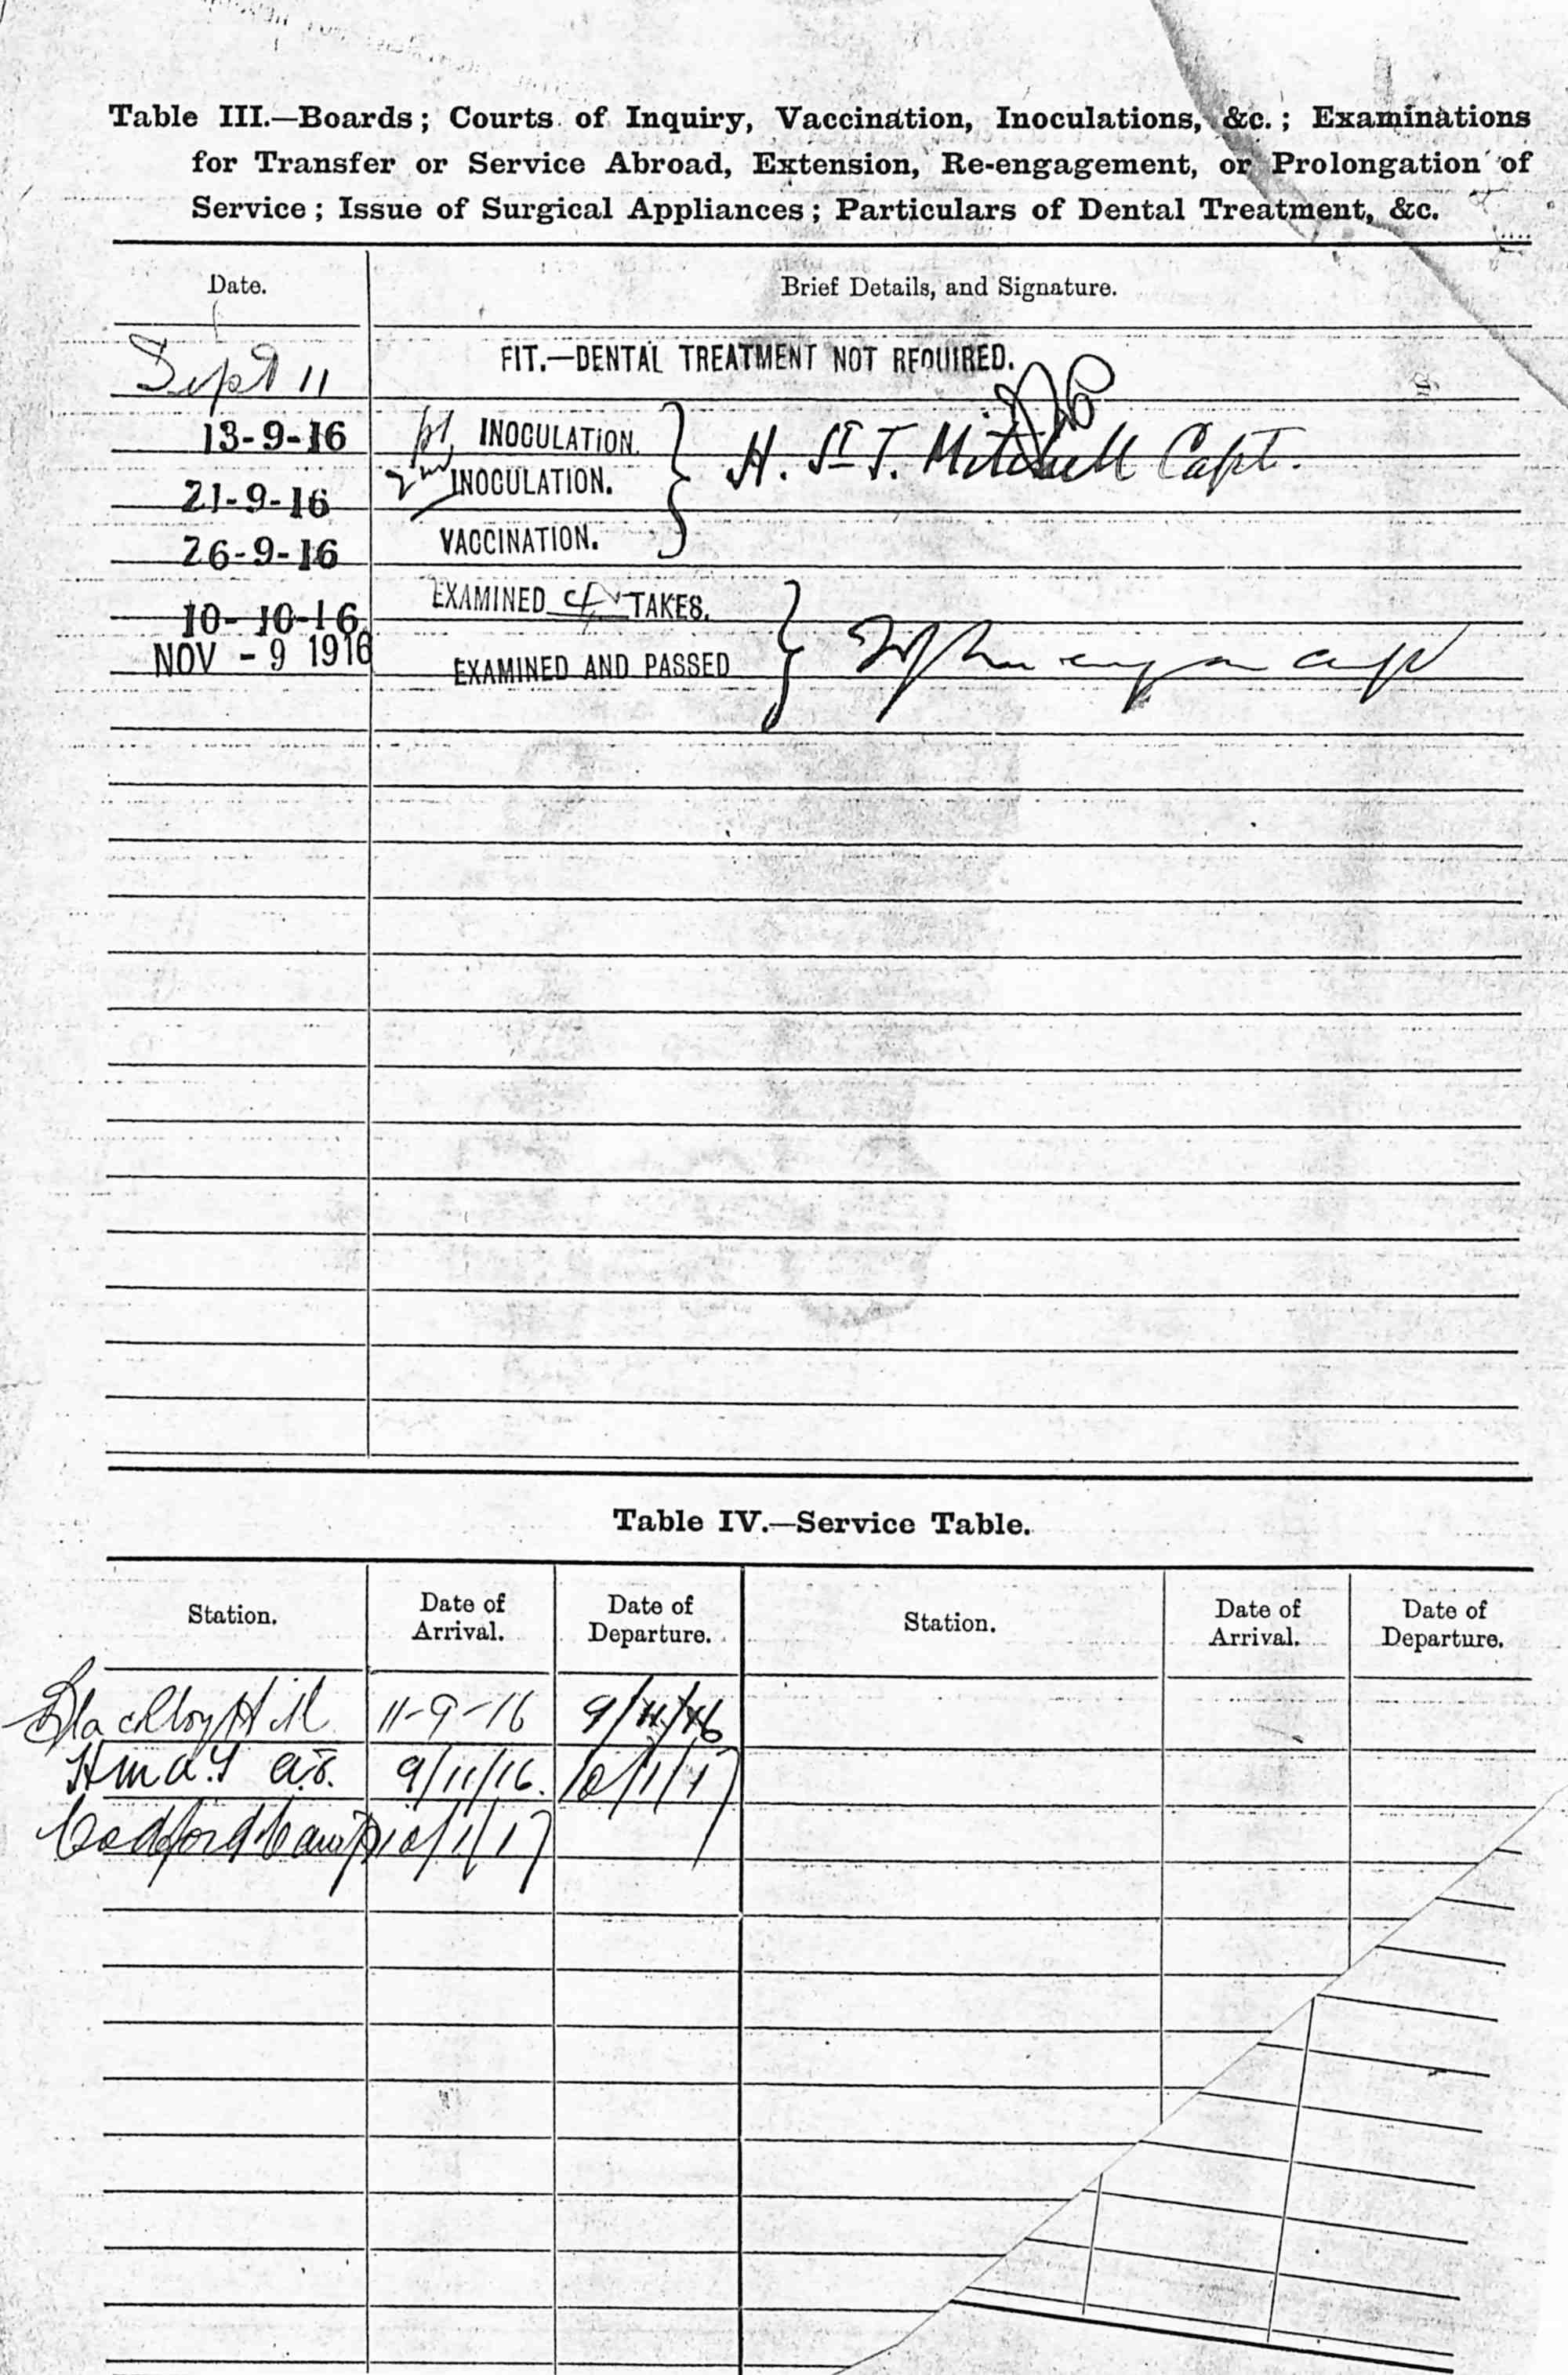 Table III.—Boards; Courts of Inquiry, Vaccination, Inoculations, &c.; Examinations
for Transfer or Service Abroad, Extension, Re-engagement, or Prolongation of
Service; Issue of Surgical Appliances; Particulars of Dental Treatment, &c.
Date. Brief Details, and Signature.
Sept 11 FIT.—DENTAL TREATMENT NOT REQUIRED.
13-9-16 1st INOCULATION. H. St J. Mitchell Capt.
21-9-16 2nd INOCULATION.
26-9-16 VACCINATION.
10-10-16 EXAMINED 4 TAKES.
NOV - 9 1916 EXAMINED AND PASSED Capt
Table IV.—Service Table.
Station. Date of Arrival. Date of Departure. Station. Date of Arrival. Date of Departure.
Blackboy Hill 11-9-16 9/11/16
HMAT A.8. 9/11/16. 10/1/17
Codford Camp 10/1/17